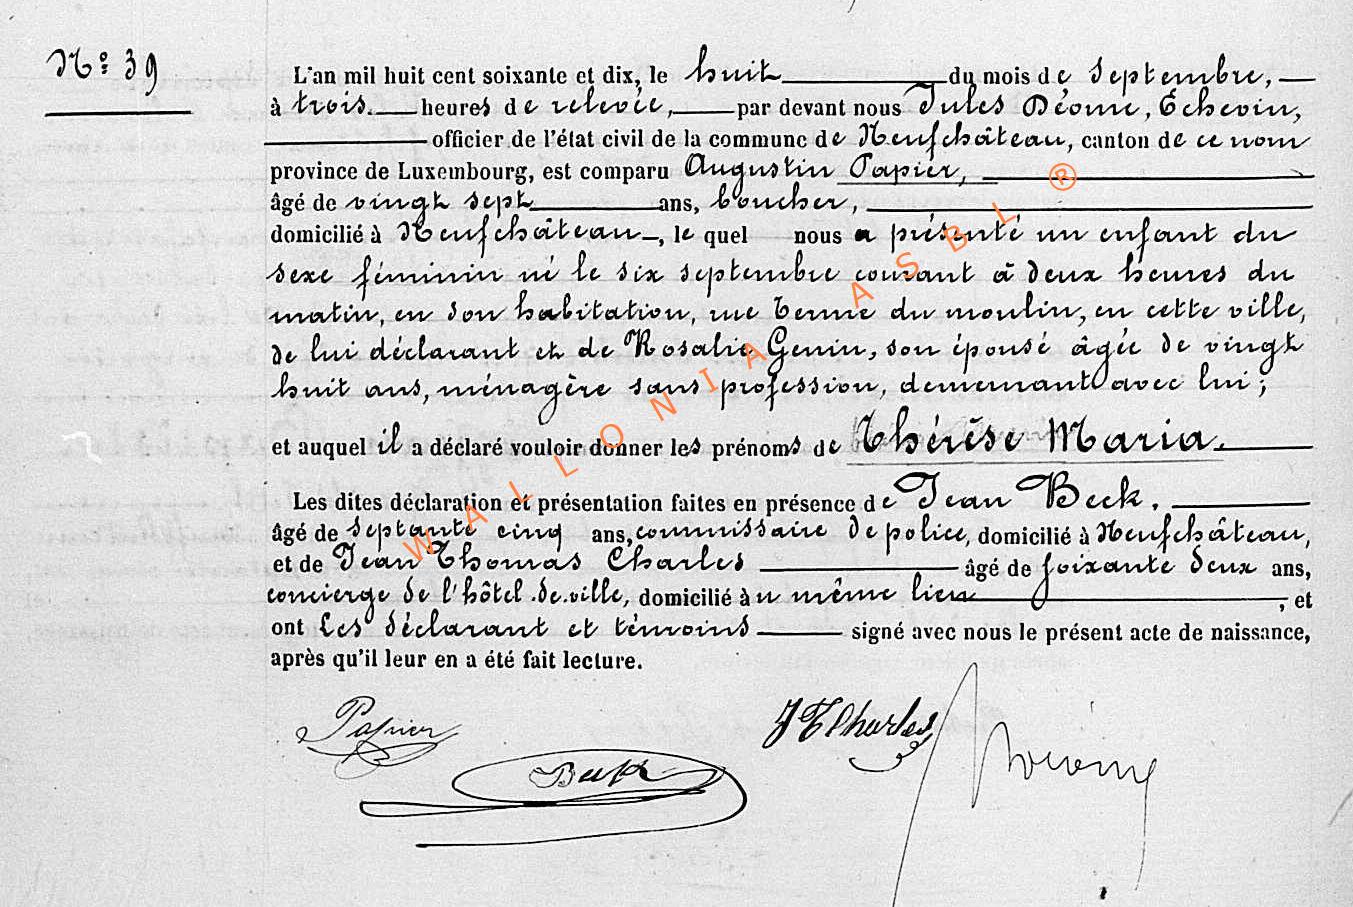 N° 39
L'an mil huit cent soixante et dix, le huit du mois de Septembre,
à trois heures de relevée, par devant nous Jules Déome, Echevin,
officier de l'état civil de la commune de Neufchâteau, canton de ce nom
province de Luxembourg, est comparu Augustin Papier,
âgé de vingt sept ans, boucher,
domicilié à Neufchâteau, le quel nous a présenté un enfant du
sexe féminin né le six septembre courant à deux heures du
matin, en son habitation, rue Terme du moulin, en cette ville,
de lui déclarant et de Rosalie Genin, son épouse âgée de vingt
huit ans, ménagère sans profession, demeurant avec lui;
et auquel il a déclaré vouloir donner les prénoms de Thérèse Maria.
Les dites déclaration et présentation faites en présence de Jean Beck.
âgé de septante cinq ans, commissaire de police, domicilié à Neufchâteau,
et de Jean Thomas Charles âgé de soixante deux ans,
concierge de l'hôtel de ville, domicilié au même lieu, et
ont les déclarant et témoins signé avec nous le présent acte de naissance,
après qu'il leur en a été fait lecture.
Papier
JTCharles
Beck
WALLONIA ASBL ®